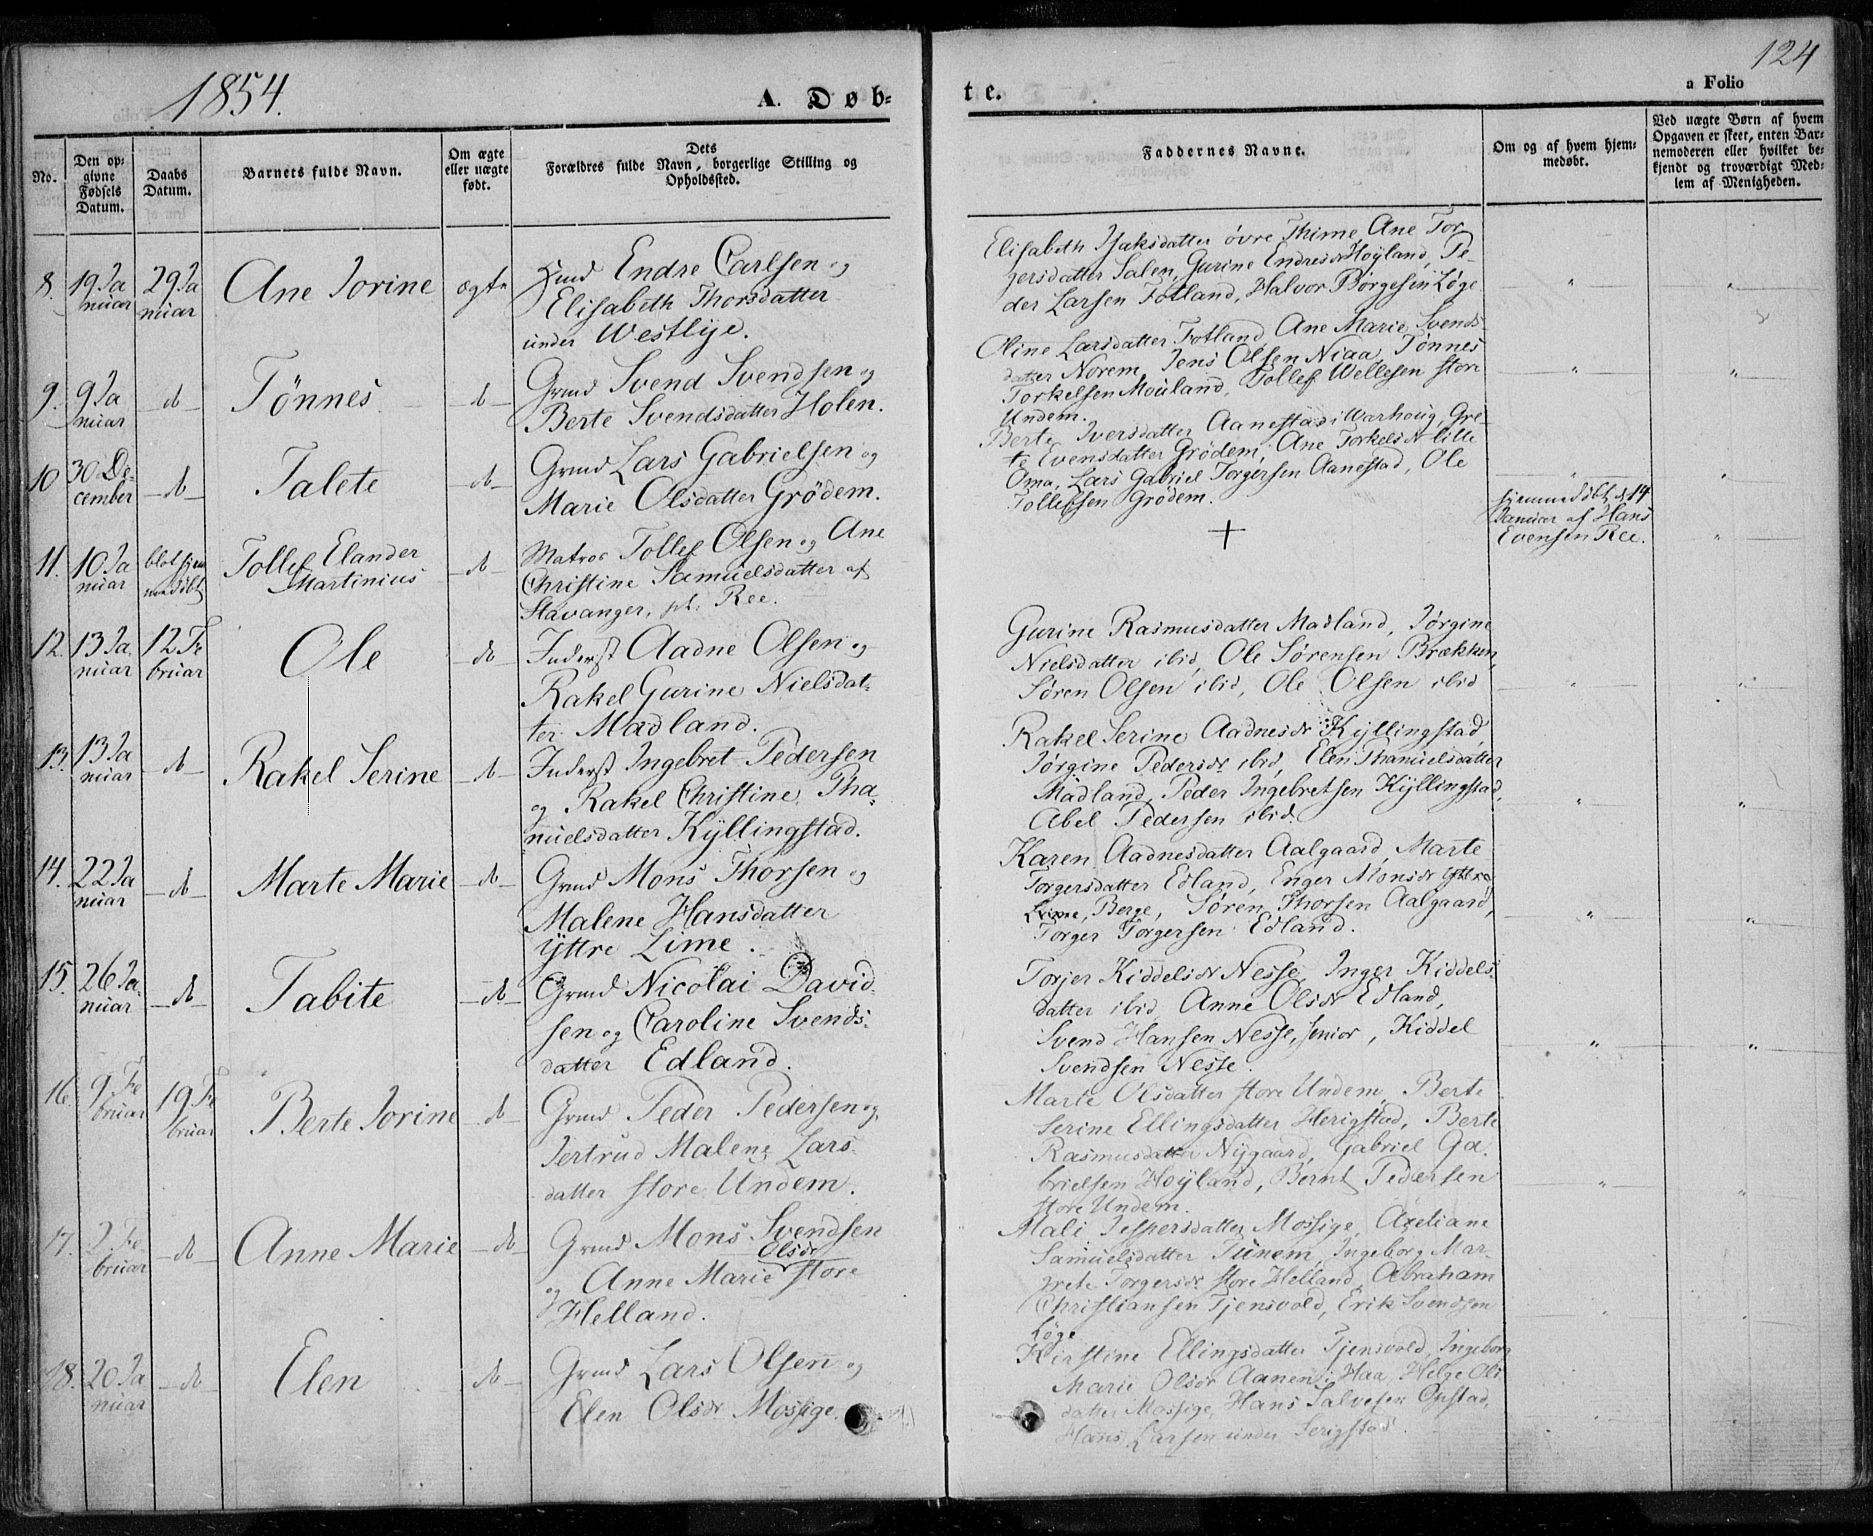 1854.
A. Døb-
te.
124
a Folio
No.
Den op-
givne
Fødsels
Datum.
Daabs
Datum.
Barnets fulde Navn.
Om ægte
eller uægte
født.
Dets
Forældres fulde Navn, borgerlige Stilling og
Opholdssted.
Faddernes Navne.
Om og af hvem hjem-
medøbt.
Ved uægte Børn af hvem
Opgaven er skeet, enten Bar-
nemoderen eller hvilket be-
kjendt og troværdigt Med-
lem af Menigheden.
8.
19 Ja
nuar
29 Ja
nuar
Ane Jorine
ægte
Hmd Endre Carlsen og
Elisabeth Thorsdatter
under Westlye.
Elisabeth Isaksdatter øvre Thime, Ane Tor
gersdatter Salen, Gurine Endresdr Høyland, Pe-
der Larsen Fotland, Halvor Børgesen Løge
9.
9 Ja
nuar
do
Tönnes
do
Grmd Svend Svendsen og
Berte Svendsdatter Holen.
Oline Larsdatter Fotland, Ane Marie Svends-
datter Norem, Jens Olsen Niaa, Tönnes
Torkelsen Mouland, Tollef Wellesen store
Undem.
10
30 De-
cember
do
Talete
do
Grmd Lars Gabrielsen og
Marie Olsdatter Grödem.
Berte Iversdatter Aanestad i Warhoug, Gre-
te Evensdatter Grödem, Ane Torkelsdr lille
Oma, Lars Gabriel Torgersen Aanestad, Ole
Tollefsen Grödem.
11.
10 Ja
nuar
blot hjem
medöbt
Tollef Elander
Martinius
do
Matros Tollef Olsen og Ane
Christine Samuelsdatter af
Stavanger, pt. Ree.
+
hjemmedöbt d 14
Januar af Hans
Evensen Ree.
12.
13 Ja
nuar
12 Fe
bruar
Ole
do
Inderst Aadne Olsen og
Rakel Gurine Nielsdat-
ter Madland.
Gurine Rasmusdatter Madland, Jörgine
Nielsdatter ibid, Ole Sørensen Brækken,
Søren Olsen ibid, Ole Olsen ibid
13.
13 Ja
nuar
do
Rakel Serine
do
Inderst Ingebret Pedersen
og Rakel Christine Tha-
nuelsdatter Kyllingstad.
Rakel Serine Aadnesdr Kyllingstad
Jørgine Pedersdr ibid, Elen Thanuelsdatter
Madland, Peder Ingebretsen Kyllingstad,
Abel Pedersen ibid.
14.
22 Ja
nuar
do
Marte Marie
do
Grmd Mons Thorsen og
Malene Hansdatter
Yttre Lime.
Karen Aadnesdatter Aalgaard, Marte
Torgersdatter Edland, Enger Monsdr Yttre
Lime, Berge, Søren Thorsen Aalgaard,
Torger Torgersen Edland.
15.
26 Ja-
nuar
do
Tabite
do
Grmd Nicolai David-
sen og Caroline Svends-
datter Edland.
Torjer Kiddelsdr Nesse, Inger Kiddels-
datter ibid, Anne Olsdr Edland,
Svend Hansen Nesse, senior, Kiddel
Svendsen Nesse.
16
9 Fe
bruar
19 Fe
bruar
Berte Jorine
do
Grmd Peder Pedersen og
Jertrud Malene Lars-
datter store Undem.
Marte Olsdatter store Undem, Berte
Serine Ellingsdatter Herigstad, Berte
Rasmusdatter Nygaard, Gabriel Ga-
brielsen Høyland, Bernt Pedersen
store Undem.
17.
2 Fe
bruar
do
Anne Marie
do
Grmd Mons Svendsen
og Anne Marie Olsdr store
Helland.
Mali Jespersdatter Mossige, Axeliane
Samuelsdatter Tunem, Ingeborg Mar-
grete Torgersdr store Helland, Abraham
Christiansen Tjensvold, Erik Svendsen
Løge
18.
20 Ja
nuar
do
Elen
do
Grmd Lars Olsen og
Elen Olsdr Mossige.
Kirstine Ellingsdatter Tjensvold, Ingeborg
Marie Olsdr Aanen i Haa, Helge Ols
datter Mossige, Hans Salvesen Opstad,
Hans Larsen under Serigstad.